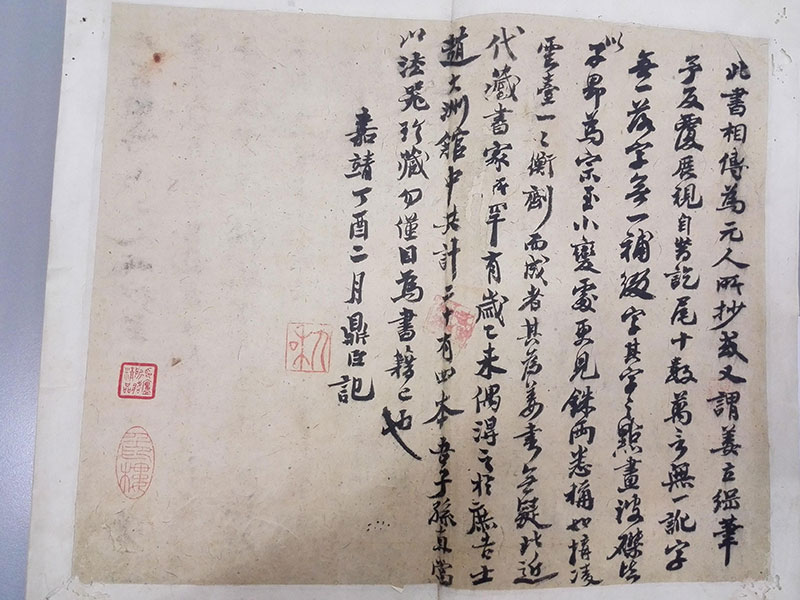 此書相傳為元人所抄或又謂姜立綱筆
予反覆展視自首訖尾十數萬言無一訛字
無一落字無一補綴字其字之點畫波磔皆
以子昂為宗至小變處更見銖兩悉稱如搆凌
雲臺一一衡劑而成者其為姜書無疑此近
代藏書家所罕有歲乙未偶得之於庶吉士
趙大洲館中共計二十有四本吾子孫真當
以法珍藏勿僅目為書籍已也
嘉靖丁酉二月鼎臣記
九和